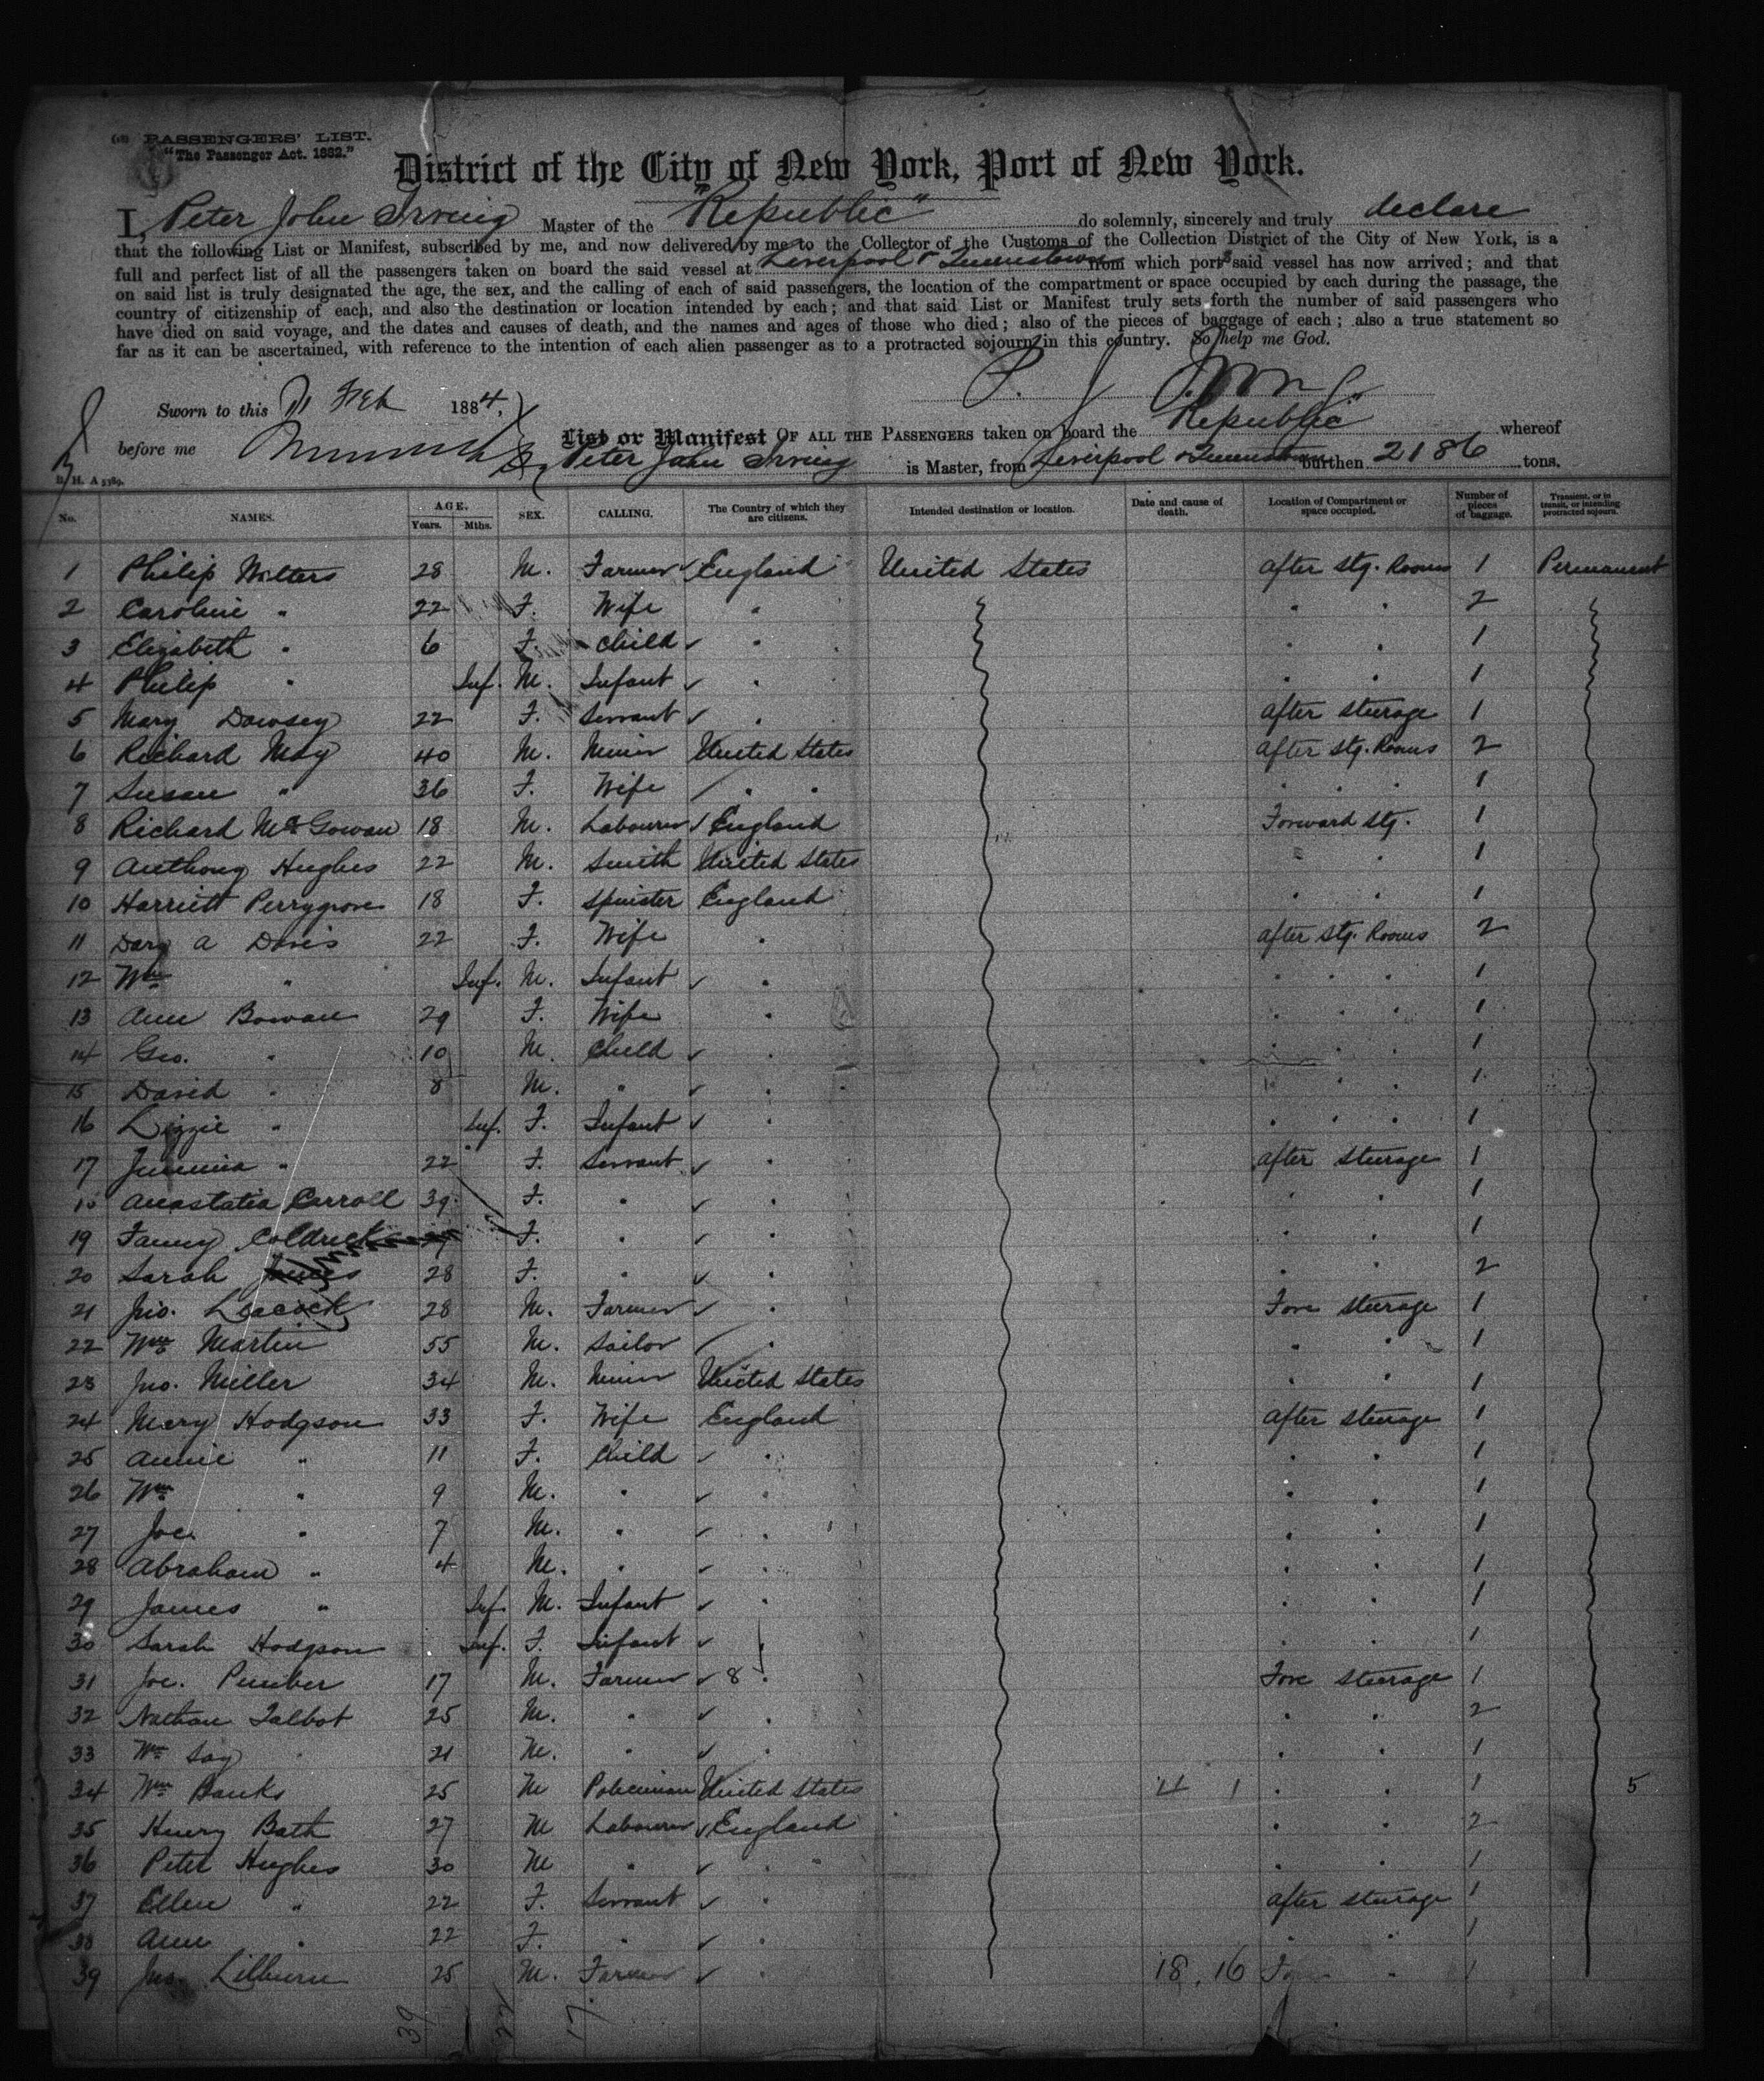 PASSENGERS' LIST.
"The Passenger Act. 1882."
District of the City of New York, Port of New York.
I, Peter John Irving Master of the "Republic" do solemnly, sincerely and truly declare
that the following List or Manifest, subscribed by me, and now delivered by me to the Collector of the Customs of the Collection District of the City of New York, is a
full and perfect list of all the passengers taken on board the said vessel at Liverpool & Queenstown from which ports said vessel has now arrived; and that
on said list is truly designated the age, the sex, and the calling of each of said passengers, the location of the compartment or space occupied by each during the passage, the
country of citizenship of each, and also the destination or location intended by each; and that said List or Manifest truly sets forth the number of said passengers who
have died on said voyage, and the dates and causes of death, and the names and ages of those who died; also of the pieces of baggage of each; also a true statement so
far as it can be ascertained, with reference to the intention of each alien passenger as to a protracted sojourn in this country. So help me God.
P. J. Irving
Sworn to this Feb 1884,
before me
List or Manifest OF ALL THE PASSENGERS taken on board the "Republic" whereof
Peter John Irving is Master, from Liverpool & Queenstown burthen 2186 tons.
No. NAMES. AGE. Years. Mths. SEX. CALLING. The Country of which they are citizens. Intended destination or location. Date and cause of death. Location of Compartment or space occupied. Number of pieces of baggage. Transient, or in transit, or intending protracted sojourn.
1 Philip Wilters 28 M. Farmer England United States after stg. Rooms 1 Permanent
2 Caroline " 22 F. Wife " " " 2
3 Elizabeth " 6 F. Child " " " 1
4 Philip " Inf. M. Infant " " " 1
5 Mary Dowsey 22 F. Servant " after steerage 1
6 Richard May 40 M. Miner United States after stg. Rooms 2
7 Susan " 36 F. Wife " " " " " 1
8 Richard McGowan 18 M. Labourer England Forward stg. 1
9 Anthony Hughes 22 M. Smith United States " " 1
10 Harriett Perrygrove 18 F. Spinster England " " 1
11 A Davis 22 F. Wife " after stg. Rooms 2
12 Wm " Inf. M. Infant " " " " 1
13 Ann Bowan 29 F. Wife " " " " 1
14 Geo. " 10 M. Child " " " " 1
15 David " 8 M. " " " " " 1
16 Lizzie " Inf. F. Infant " " " " 1
17 Jemima " 22 F. Servant " after steerage 1
18 Anastatia Carroll 39 F. " " " " 1
19 Fanny Coldrick F. " " " " 1
20 Sarah 28 F. " " " " 2
21 Jno. Leacock 28 M. Farmer " Fore steerage 1
22 Wm Martin 55 M. Sailor " " " 1
23 Jno. Miller 34 M. Miner United States " " 1
24 Mary Hodgson 33 F. Wife England after steerage 1
25 Annie " 11 F. Child " " " 1
26 Wm " 9 M. " " " " 1
27 Joe. " 7 M. " " " " 1
28 Abraham " 4 M. " " " " 1
29 James " Inf. M. Infant " " " 1
30 Sarah Hodgson Inf. F. Infant " " " 1
31 Joe. 17 M. Farmer 8 " Fore steerage 1
32 Nathan Talbot 25 M. " " " " 2
33 Wm Say 21 M. " " " " 1
34 Wm Banks 25 M Policeman United States 4 1 " " 1 5
35 Henry Bath 27 M Labourer England " " 2
36 Peter Hughes 30 M " " " " 1
37 Ellen " 22 F. Servant " after steerage 1
38 Ann " 22 F. " " " " 1
39 Jno. Lilburn 25 M. Farmer " 18. 16 " 1
39 22 17.